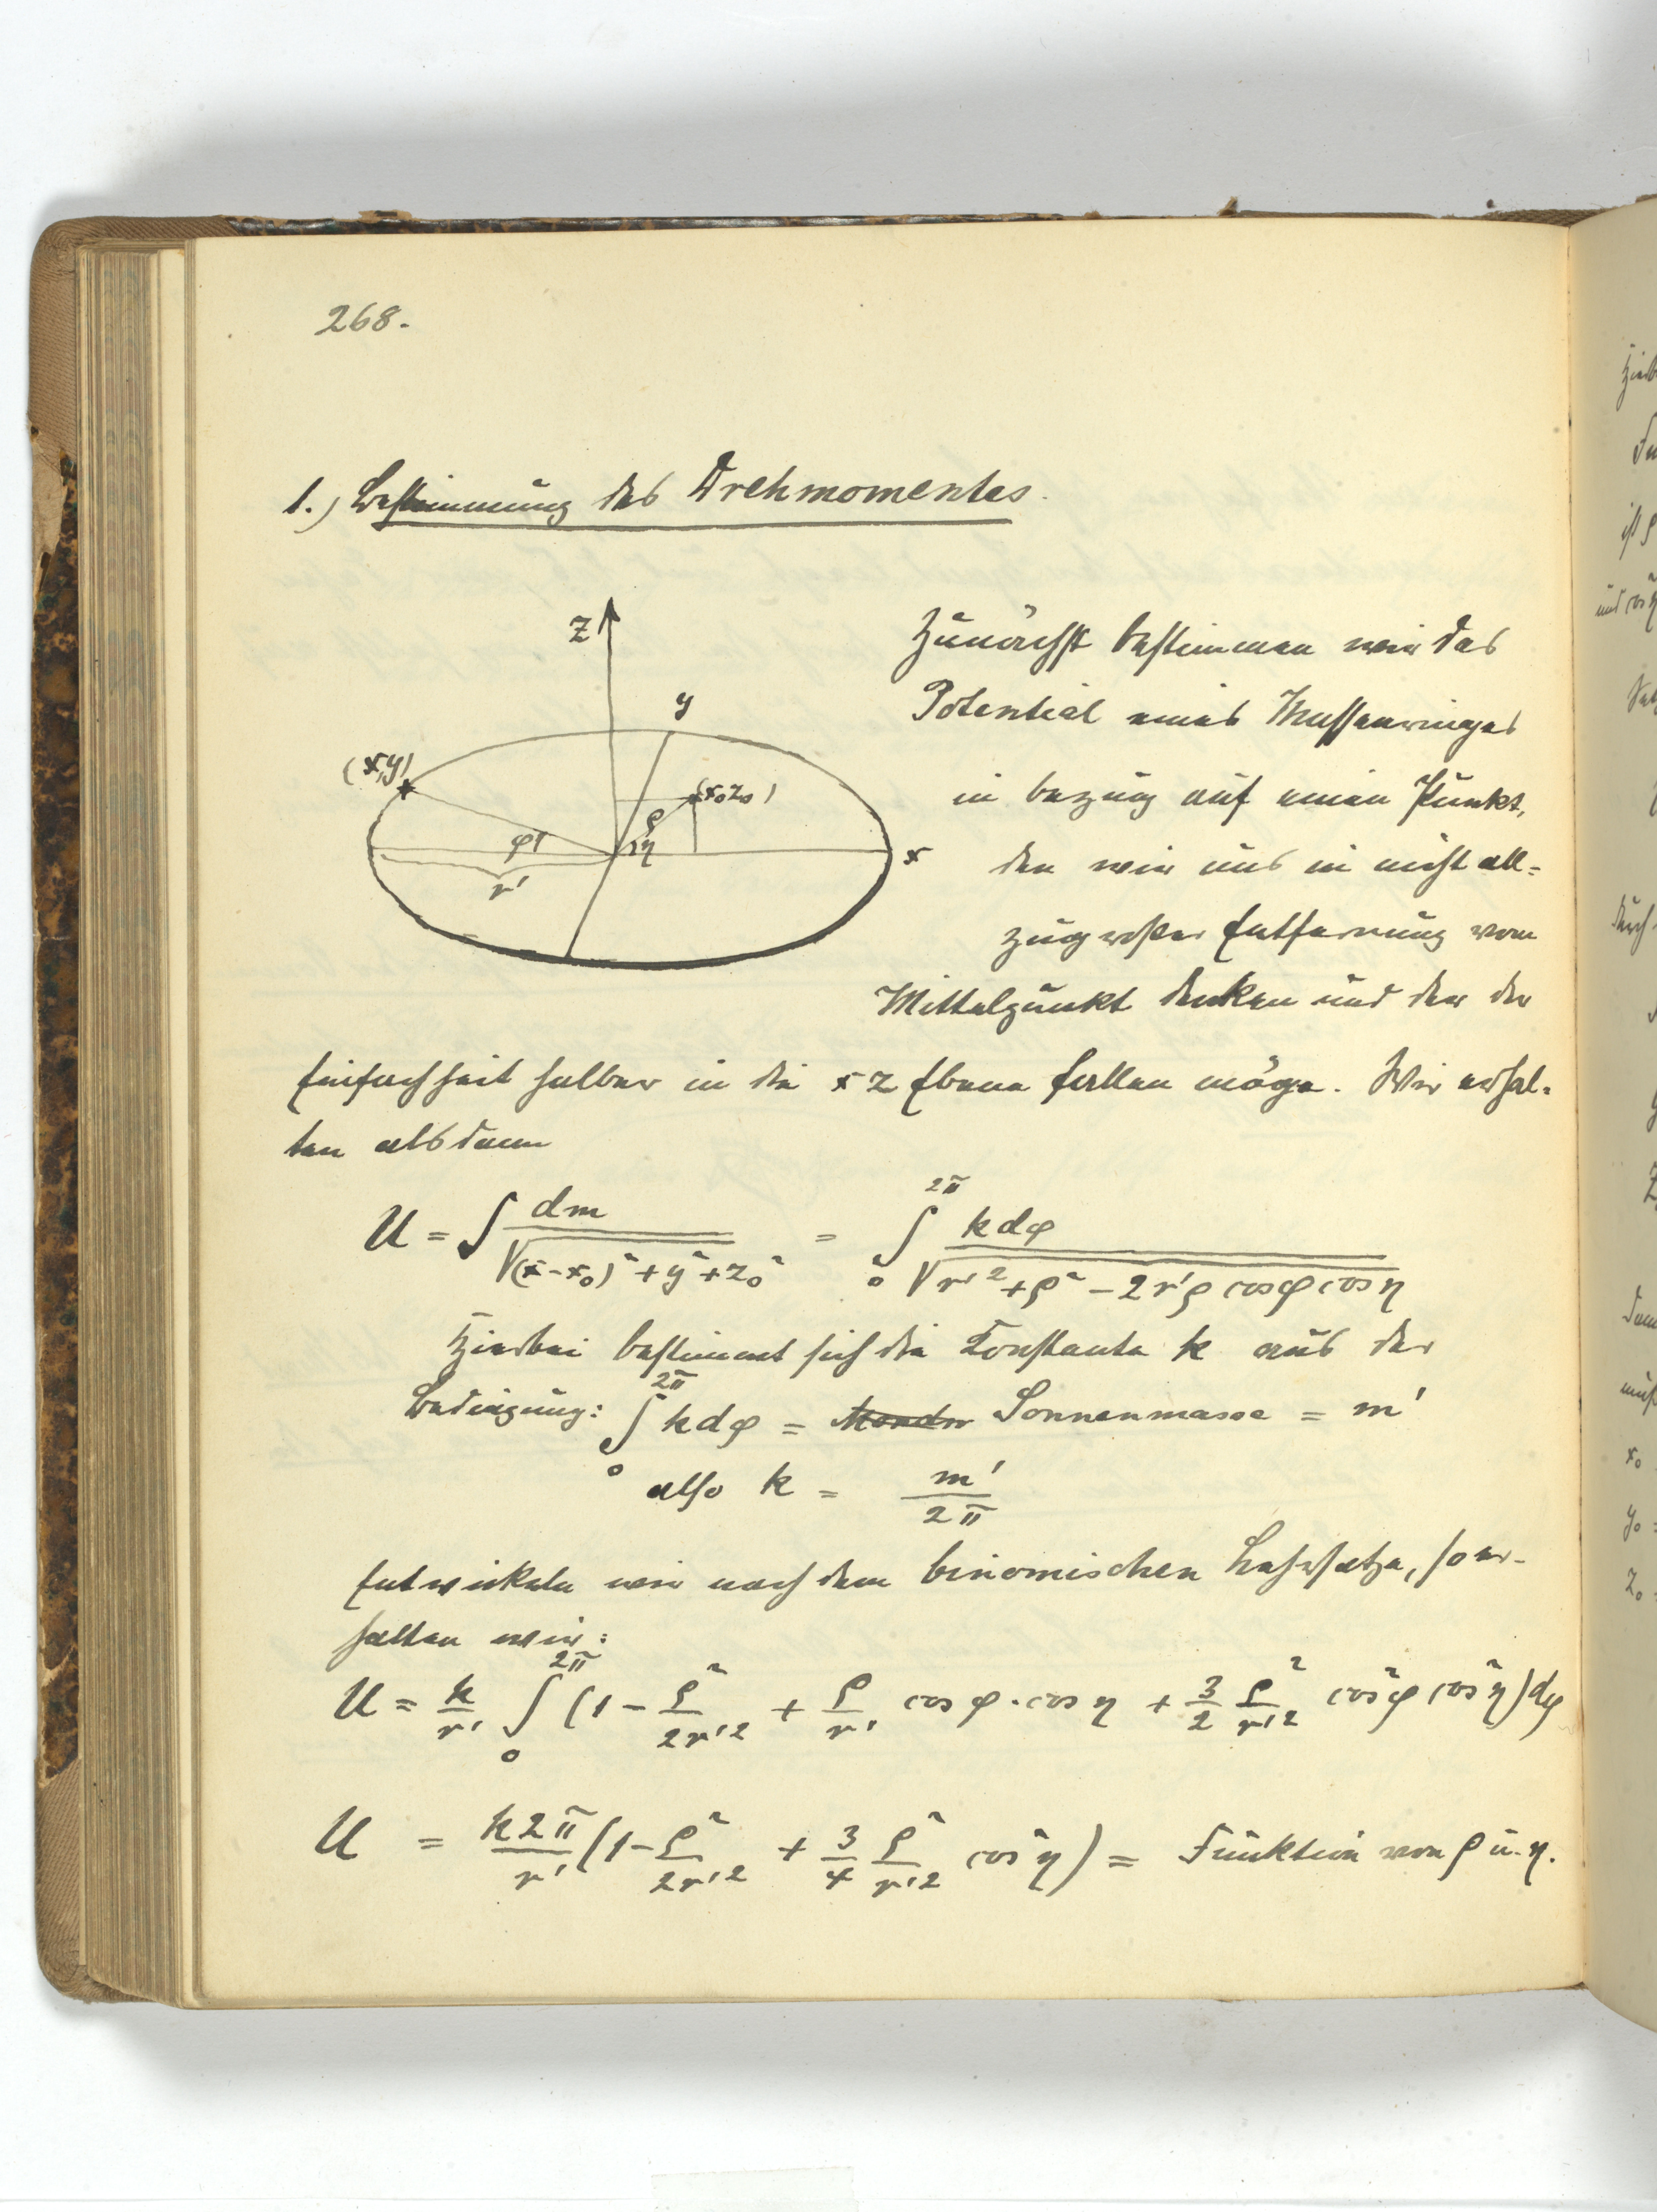 268.
1.) Bestimmung des Drehmomentes.
z
y
(x,y)
(x₀z₀)
ρ
φ
η
x
r'
Zunächst bestimmen wir das
Potential eines Massenringes
in bezug auf einen Punkt,
den wir uns in nicht all=
zugroßer Entfernung vom
Mittelpunkt denken und der der
Einfachheit halber in die xz Ebene fallen möge. Wir erhal=
ten alsdann
U = ∫ dm / √((x-x₀)² + y² + z₀²) = ∫₀^2π k dφ / √(r'² + ρ² - 2r'ρ cosφ cos η)
Hierbei bestimmt sich die Konstante k aus der
Bedingung: ∫₀^2π k dφ = Sonnenmasse = m'
also k = m' / 2π
Entwickeln wir nach dem binomischen Lehrsatze, so er-
halten wir:
U = k/r' ∫₀^2π (1 - ρ²/2r'² + ρ/r' cos φ · cos η + 3/2 ρ²/r'² cos²φ cos²η) dφ
U = k2π/r' (1 - ρ²/2r'² + 3/4 ρ²/r'² cos²η) = Funktion von ρ u. η.